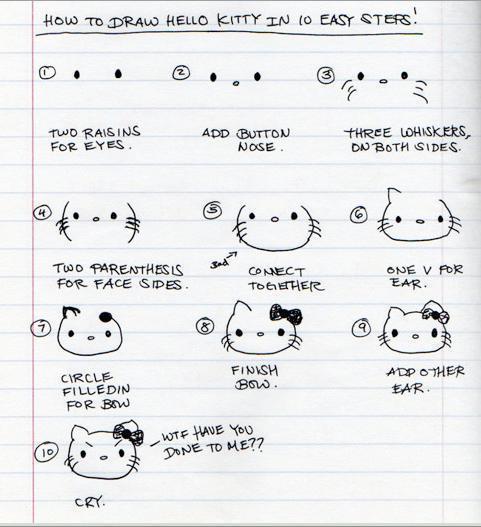 HOW TO DRAW HELLO KITTY IN 10 EASY STEPS!
1
TWO RAISINS
FOR EYES.
2
ADD BUTTON
NOSE.
3
THREE WHISKERS,
ON BOTH SIDES.
4
TWO PARENTHESIS
FOR FACE SIDES.
5
Bad
CONNECT
TOGETHER
6
ONE V FOR
EAR.
7
CIRCLE
FILLEDIN
FOR BOW
8
FINISH
BOW.
9
ADD OTHER
EAR.
10
WTF HAVE YOU
DONE TO ME??
CRY.